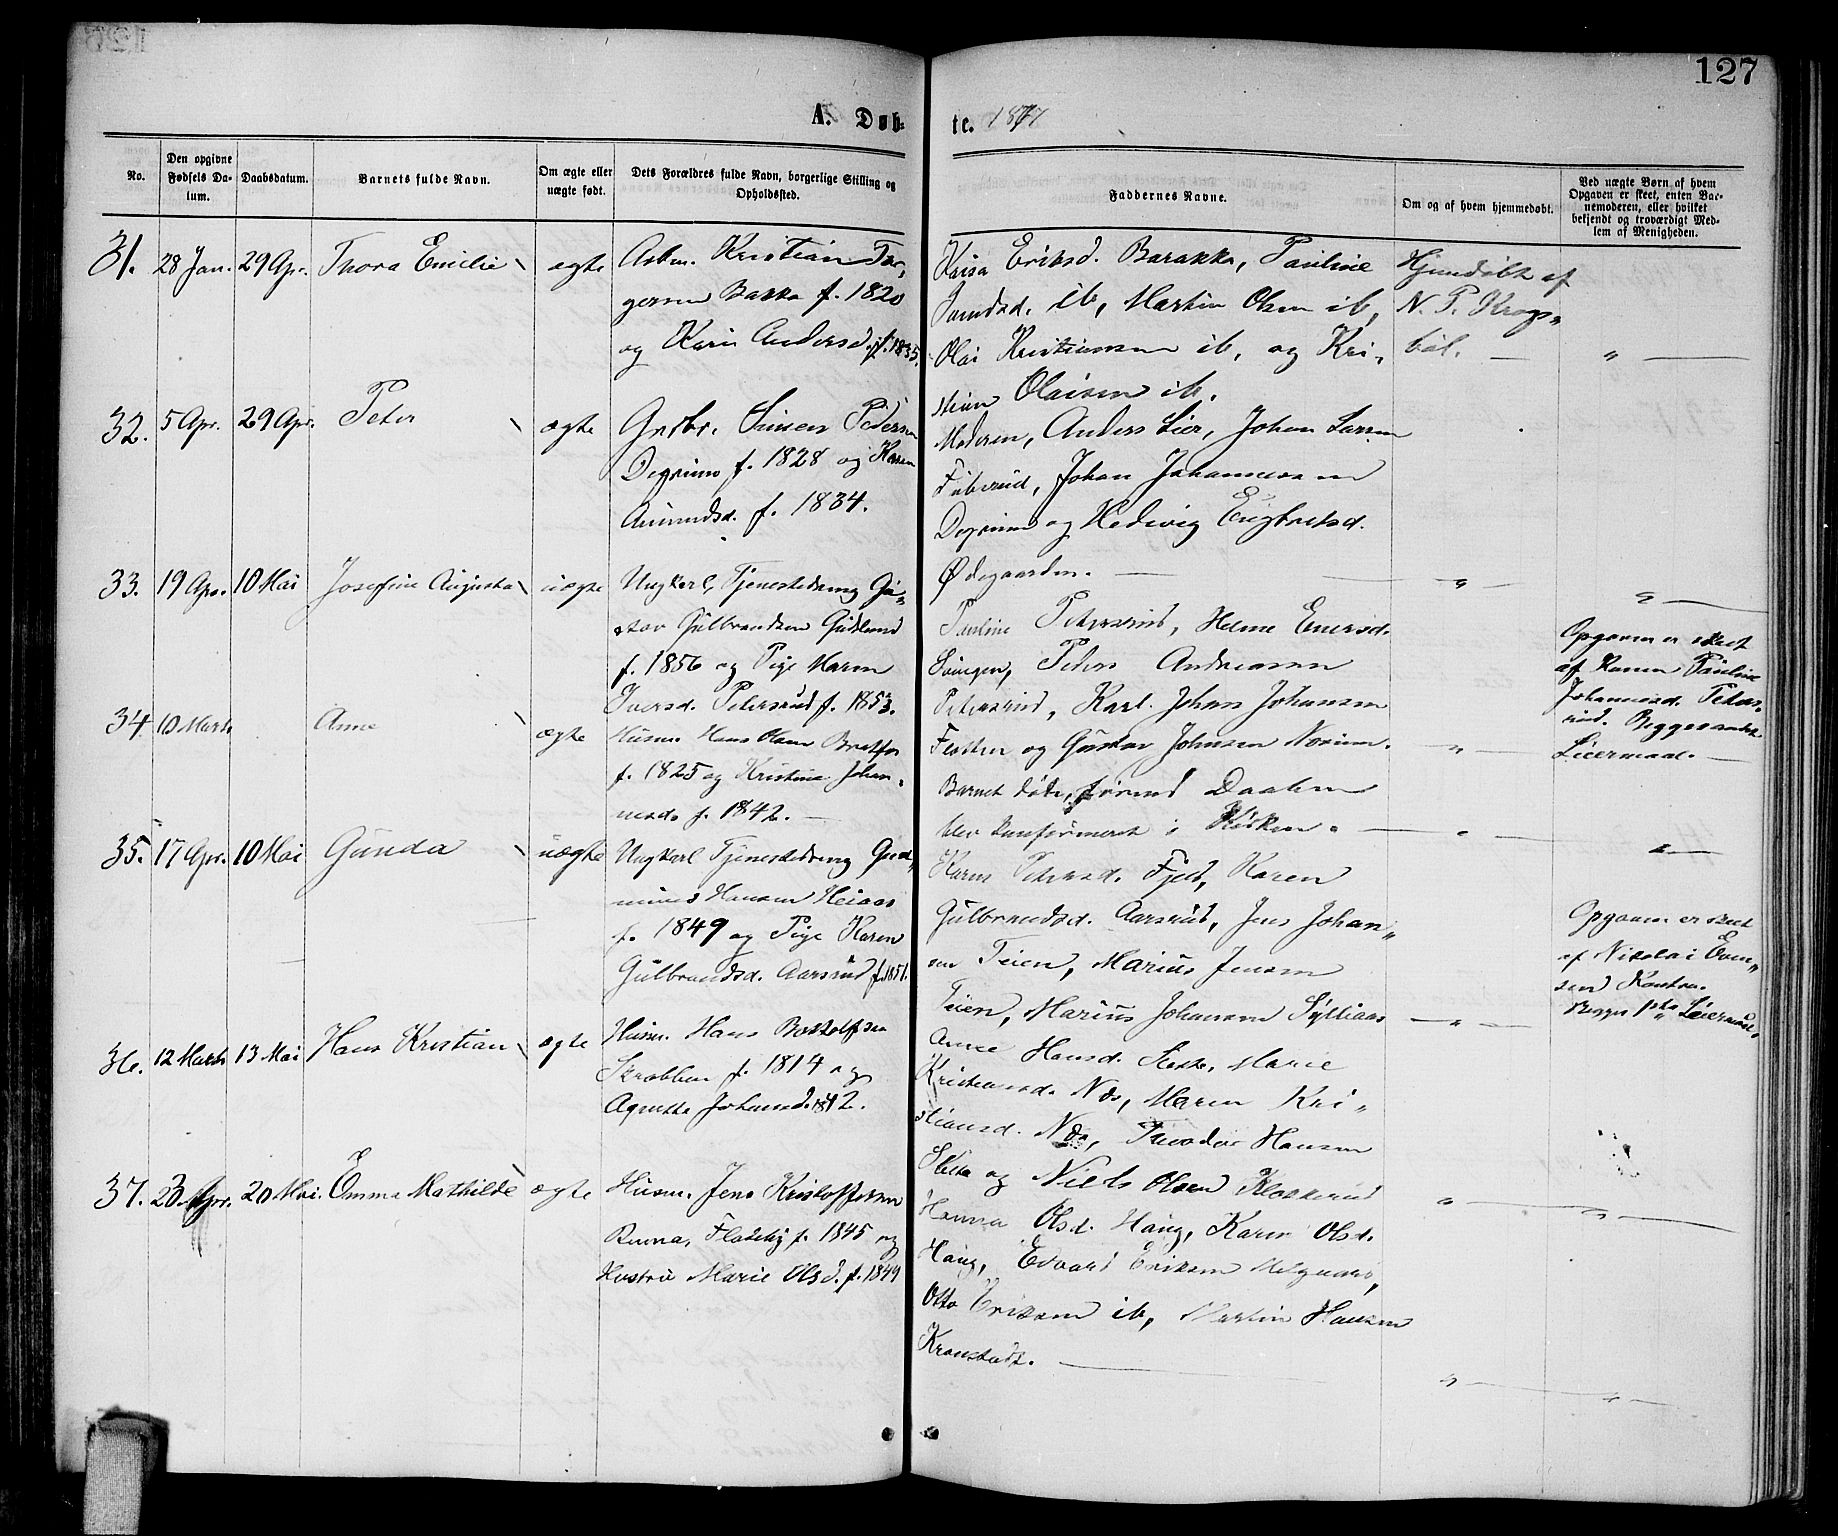 127
A. Døb-
te. 1877
No.
Den opgivne Fødsels Da-
tum.
Daabsdatum.
Barnets fulde Navn.
Om ægte eller
uægte født.
Dets Forældres fulde Navn, borgerlige Stilling og
Opholdssted.
Faddernes Navne.
Om og af hvem hjemmedøbt.
Ved uægte Børn af hvem
Opgaven er skeet, enten Bar-
nemoderen, eller hvilket
bekjendt og troværdigt Med-
lem af Menigheden.
31. 28 Jan. 29 Apr. Thora Emilie ægte
Arbm. Kristian Tor-
gersen Bakka f. 1820
og Kari Andersd. f. 1835.
Kaisa Eriksd. Barakka, Pauline
ib, Martin Olsen ib,
Olai Kristiansen ib, og Kri-
stian Olaisen ib.
Hjemdøbt af
N. P. Krogs-
bøl. — " —
32. 5 Apr. 29 Apr. Peter ægte
Grdbr. Simen Pedersen
Degrum f. 1828 og Karen
Amundsd. f. 1834.
Moderen, Anders Lier, Johan Larsen
Johan Johannesen
Degrum og Hedvig Engbretsd.
Ødegaarden. — " — " —
33. 19 Apr. 10 Mai Josefine Augusta uægte
Ungkarl, Tjenestedreng Gu-
stav Gulbrandsen
f. 1856 og Pige Maren
Iversd. Petersrud f. 1853.
Pauline Petersrud, Helene Enersd.
Peder Andreasen
Petersrud, Karl Johan Johansen
og Gustav Johnsen Norum. — " —
Opgaven er skeet
af Konen Pauline
Johannesd. Peters-
rud. Begges andet
Leiermaal. —
34 10 Marts Anne ægte
Husm. Hans Olsen
f. 1825 og Kristine Johan-
nesd. f. 1842. —
Barnet døde, førend Daaben
blev konfirmeret i Kirken. — " — " —
35. 17 Apr. 10 Mai Gunda uægte
Ungkarl Tjenestedreng Gud-
mund Hansen Heiaas
f. 1849 og Pige Karen
Gulbrandsd. Aarsrud f. 1851.
Karen Petersd. Fjeld, Karen
Gulbrandsd. Aarsrud, Jens Johan-
sen Teien, Marius Jensen
Teien, Marius Johansen — " —
Opgaven er skeet
af Nikolai Even-
sen
Begges 1ste Leiermaal.
36. 12 Marts 13 Mai Hans Kristian ægte
Husm. Hans Bottolfsen
Skrabben f. 1814 og
Agnette Johansd. 1842.
Anne Hansd. Marie
Kristiansd. Næs, Maren Kri-
stiansd. Næs, Theodor Hansen
og Niels Olsen Klokkerud " — " —
37. 23 Apr. 20 Mai. Emma Mathilde ægte
Husm. Jens Kristoffersen
Flateby f. 1845 og
Hustru Marie Olsd. f. 1849
Hanna Olsd. Haug, Karen Olsd.
Haug, Edvard Eriksen
Otto Eriksen ib, Martin Hansen
Kronstadt. — " — " —